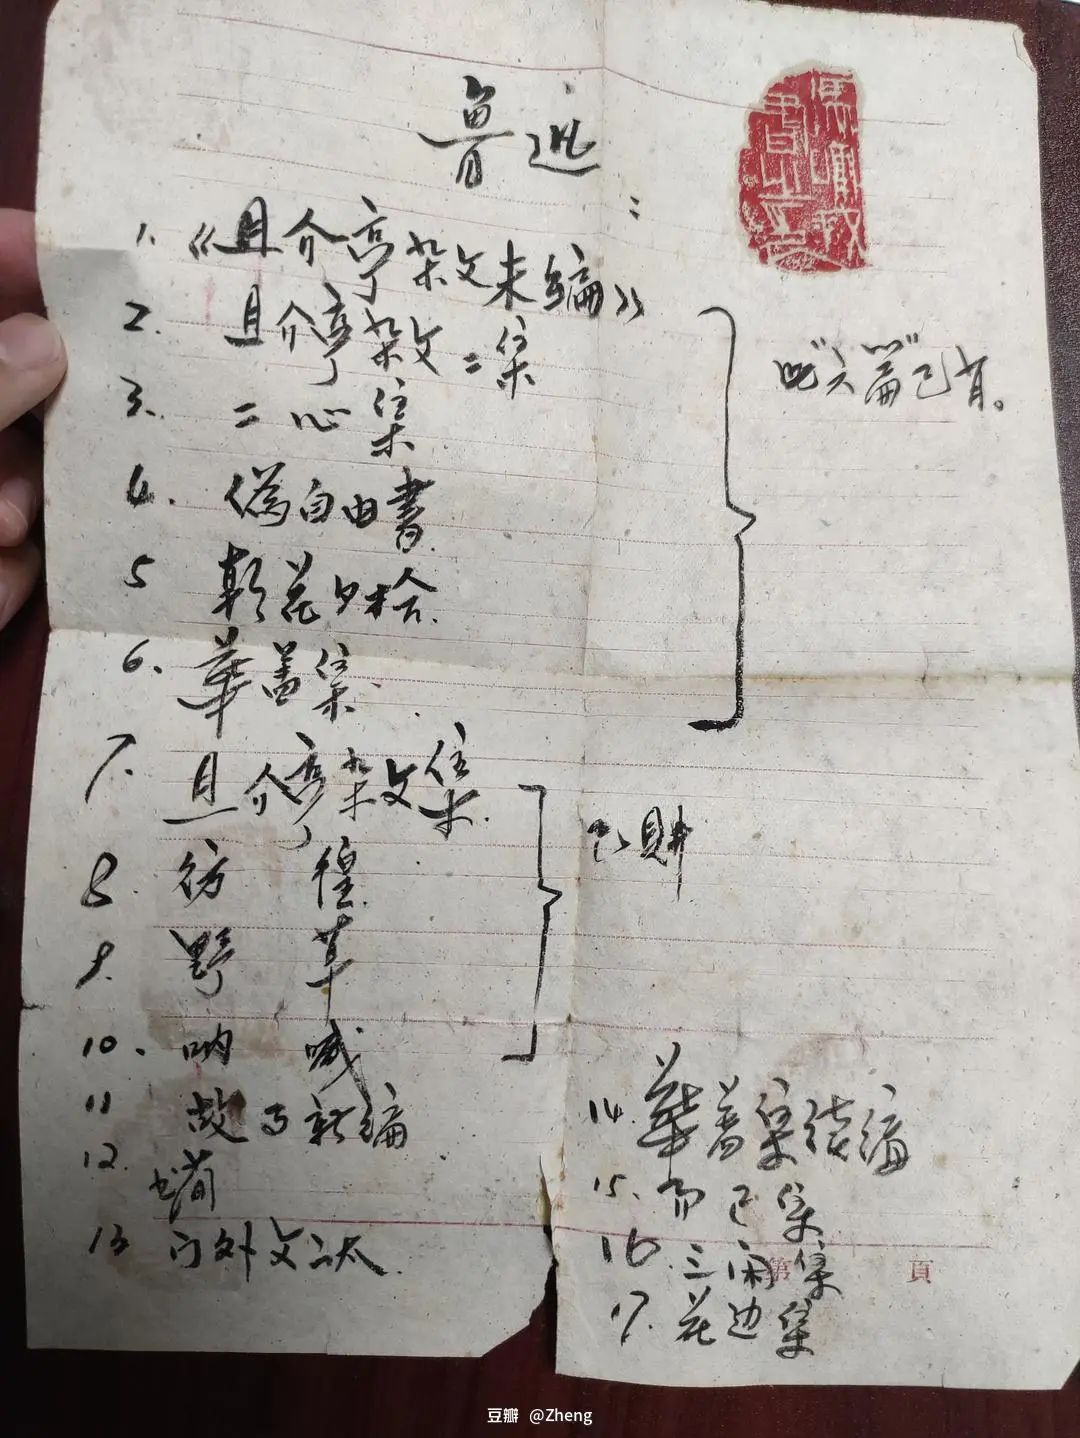 鲁迅：
1. 《且介亭杂文末编》
2. 且介亭杂文二集
3. 二心集
4. 偽自由書
5 朝花夕拾
6. 華蓋集
已有。
7. 且介亭杂文集
8. 彷徨
9. 野草
10. 呐喊
已购
11 故事新编
12. 书简
13 门外文谈
14. 華蓋集续编
15. 而已集
16. 三闲集
17. 花边集
第 頁
豆瓣 @Zheng